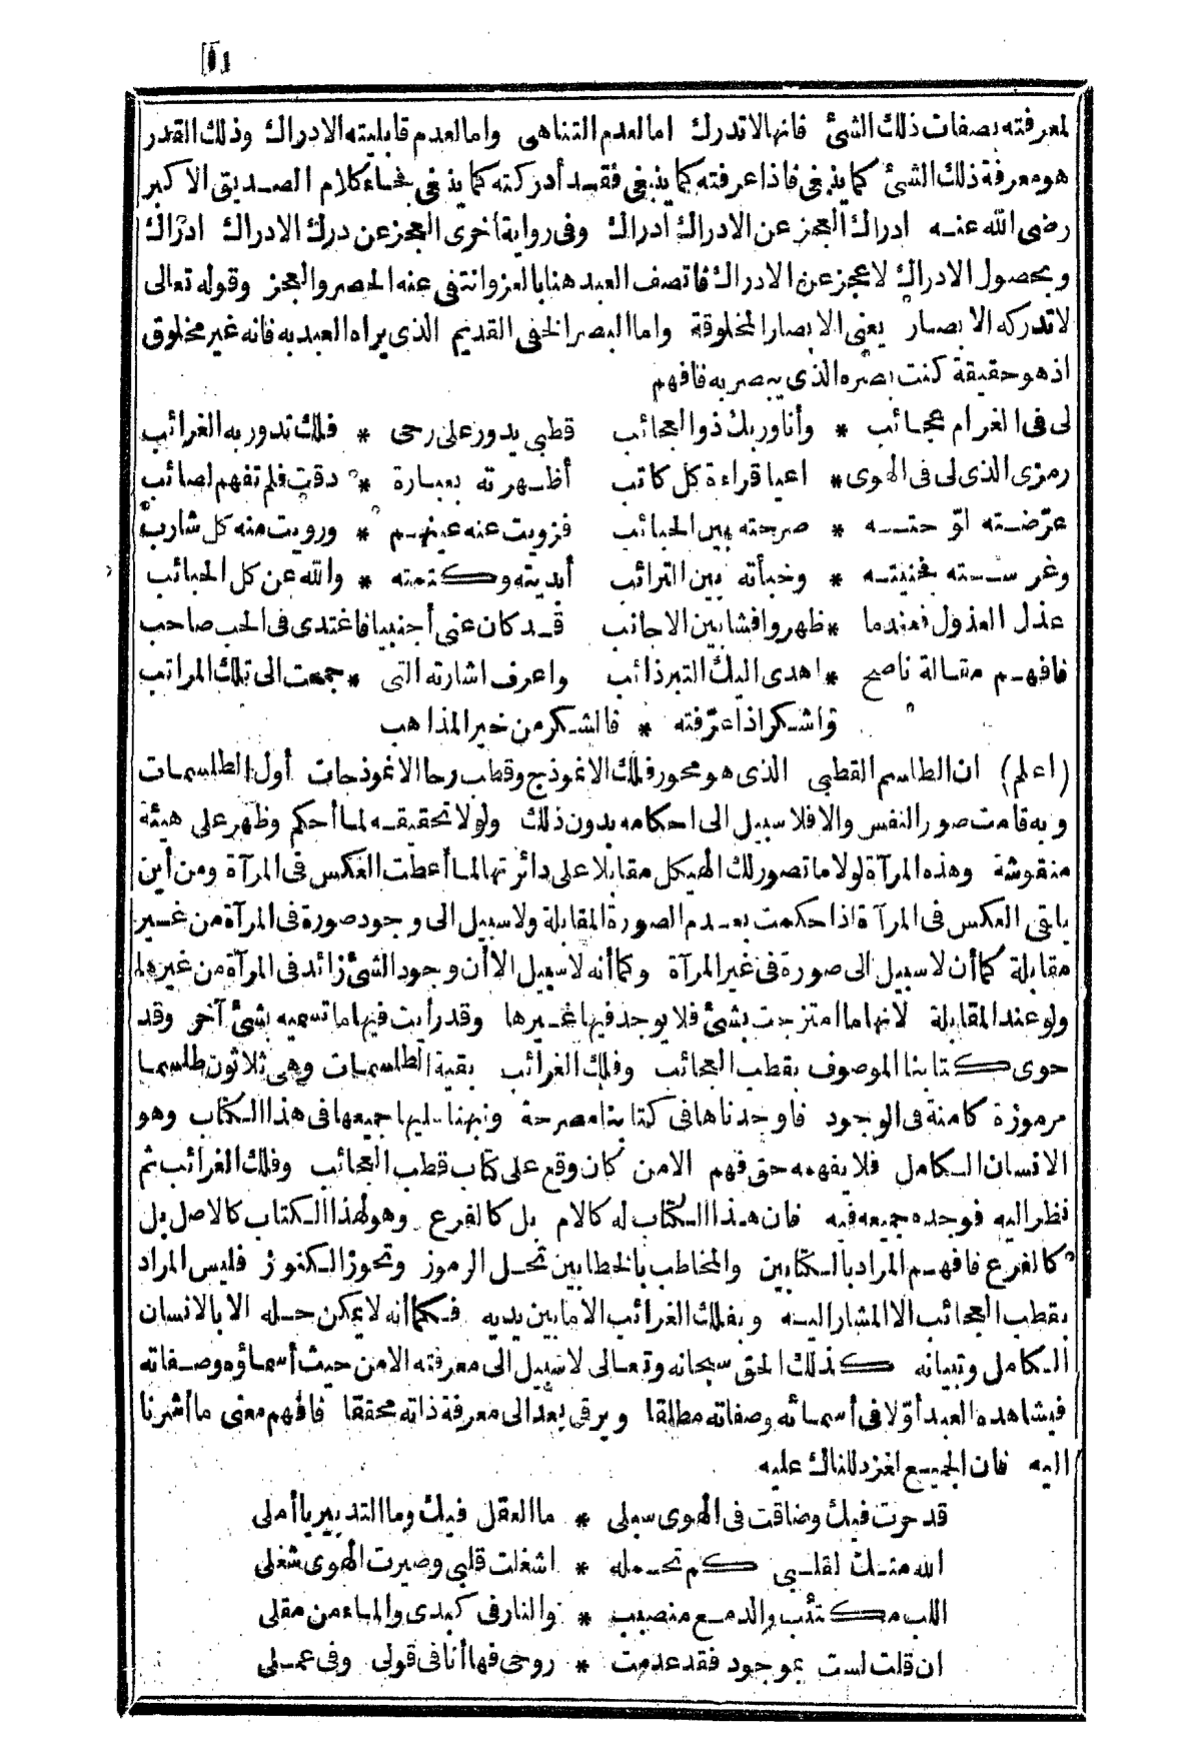 لمعرفته بصفات ذلك الشئ فانها لا تدرك اما لعدم التناهى واما لعدم قابليته الادراك وذلك القدر
هو معرفة ذلك الشئ كما ينبغى فاذا عرفته كما ينبغى فقد أدركته كما ينبغى فجاء كلام الصديق الاكبر
رضى الله عنه ادراك العجز عن الادراك ادراك وفى رواية أخرى العجز عن درك الادراك ادراك
وبحصول الادراك لا عجز عن الادراك فاتصف العبد هنا بالعز وانتفى عنه الحصر والعجز وقوله تعالى
لا تدركه الابصار يعنى الابصار المخلوقة واما البصر الخفى القديم الذى يراه العبد به فانه غير مخلوق
اذ هو حقيقة كنت بصره الذى يبصر به فافهم
لى فى الغرام عجائب * وأنا وربك ذو العجائب قطبى يدور على رحى * فلك تدور به الغرائب
رمزى الذى لى فى الهوى * اعيا قراءة كل كاتب أظهرته بعبارة * دقت فلم تفهم لصائب
عرّضته لوّحته * صرحته بين الحبائب فزويت عنه عينهم * ورويت منه كل شارب
وغرسته فجنيته * وخبأته بين الترائب أبديته وكتمته * والله عن كل الحبائب
عذل العذول فعندما * ظهروا فشابين الاجانب قد كان عنى أجنبيا فاغتدى فى الحب صاحب
فافهم مقالة ناصح * اهدى اليك التبر ذائب واعرف اشارته التى * جمعت الى تلك المراتب
واشكر اذا عرّفته * فالشكر من خير المذاهب
(اعلم) ان الطلسم القطبى الذى هو محور فلك الانموذج وقطب رحا الانموذجات أول الطلسمات
وبه قامت صور النفس والا فلا سبيل الى احكامه بدون ذلك ولولا تحقيقه لما أحكم وظهر على هيئة
منقوشة وهذه المرآة لولا ما تصور لك الهيكل مقابلا على دائرتها لما أعطت العكس فى المرآة ومن أين
ياتى العكس فى المرآة اذا حكمت بعدم الصورة المقابلة ولا سبيل الى وجود صورة فى المرآة من غير
مقابلة كما أن لا سبيل الى صورة فى غير المرآة وكما أنه لا سبيل الا أن وجود الشئ زائد فى المرآة من غيرها
ولو عند المقابلة لانها ما امتزجت بشئ فلا يوجد فيها غيرها وقد رأيت فيها ما تسميه بشئ آخر وقد
حوى كتابنا الموصوف بقطب العجائب وفلك الغرائب بقية الطلسمات وهى ثلاثون طلسما
مرموزة كامنة فى الوجود فاوجدناها فى كتابنا مصرحة ونبهنا عليها جميعها فى هذا الكتاب وهو
الانسان الكامل فلا يفهمه حق فهم الا من كان وقع على كتاب قطب العجائب وفلك الغرائب ثم
نظر اليه فوجده جميعه فيه فان هذا الكتاب له كالام بل كالفرع وهو لهذا الكتاب كالاصل بل
كالفرع فافهم المراد بالكتابين والمخاطب بالخطابين تحل الرموز وتحوز الكنوز فليس المراد
بقطب العجائب الا المشار اليه وبفلك الغرائب الا ما بين يديه فكما أنه لا يمكن حله الا بالانسان
الكامل وتبيانه كذلك الحق سبحانه وتعالى لا سبيل الى معرفته الا من حيث أسماؤه وصفاته
فيشاهده العبد أوّلا فى أسمائه وصفاته مطلقا ويرقى بعد الى معرفة ذاته محققا فافهم معنى ما أشرنا
اليه فان الجميع لغز دللناك عليه
قد حرت فيك وضاقت فى الهوى سبلى * ما العقل فيك وما التدبير يا أملى
الله منك لقلبى كم تحمله * اشغلت قلبى وصيرت الهوى شغلى
اللب مكتئب والدمع منصبب * والنار فى كبدى والماء من مقلى
ان قلت لست بموجود فقد عدمت * روحى فها أنا فى قولى وفى عملى